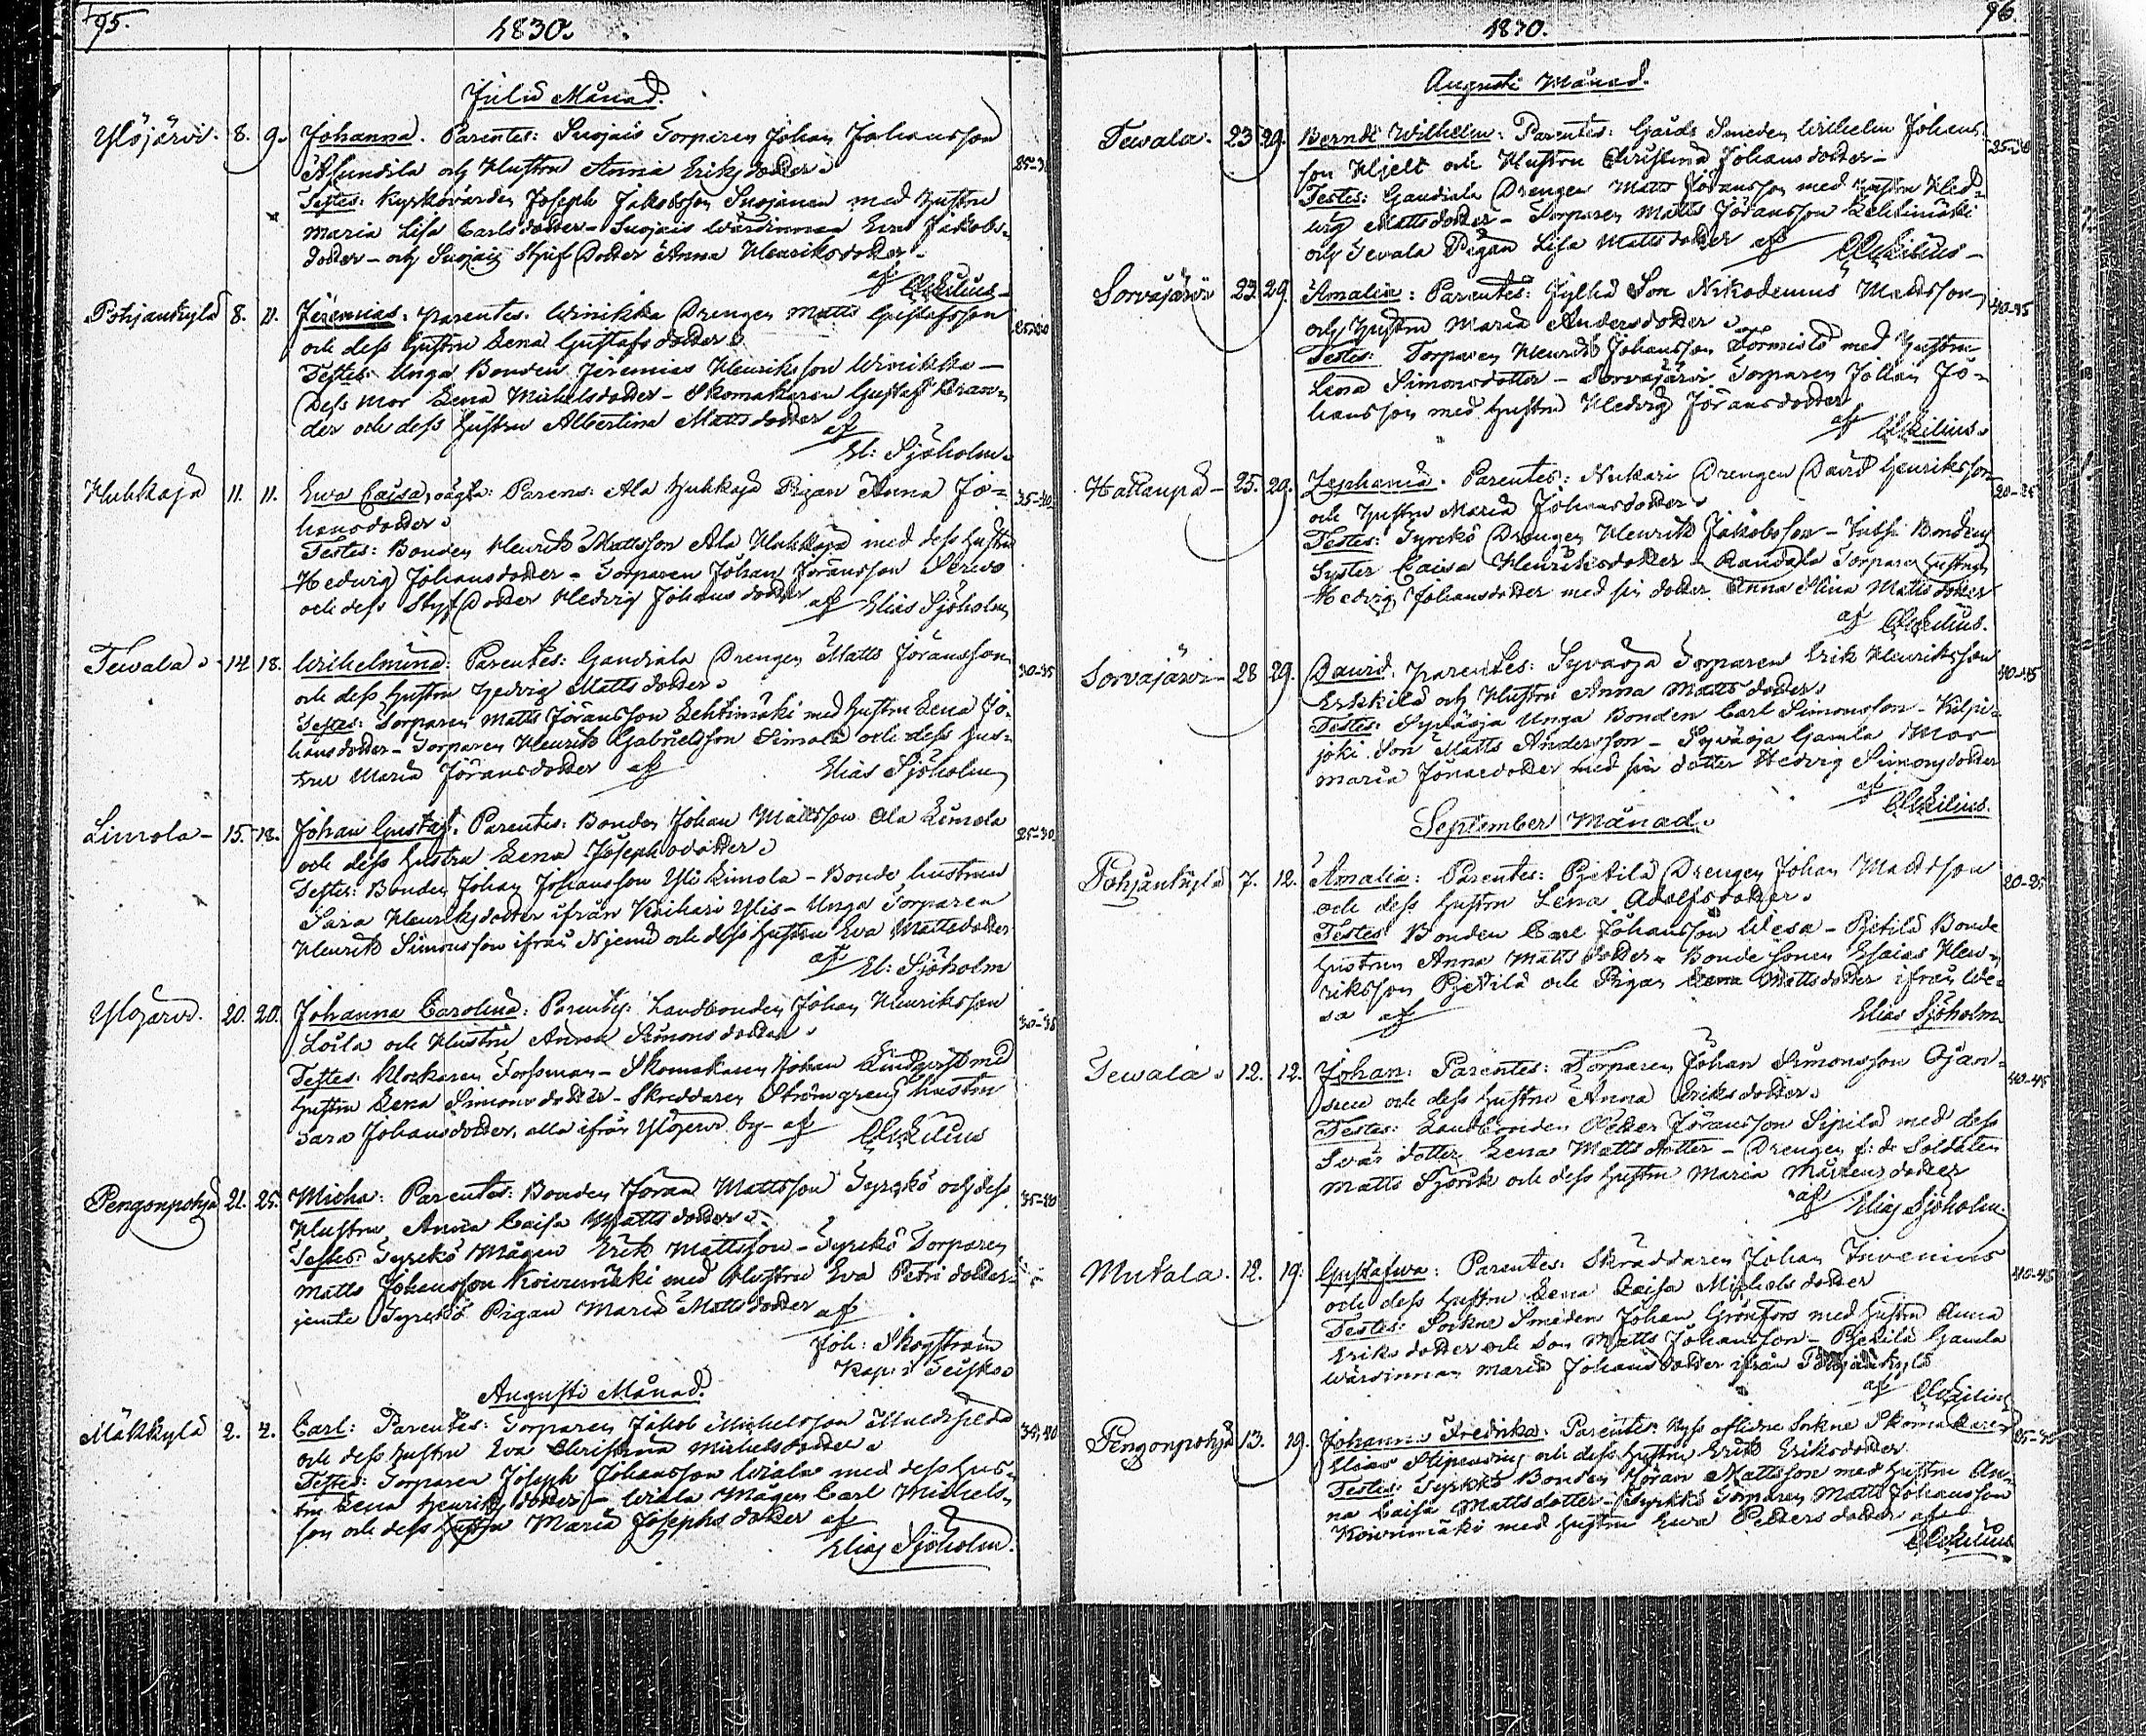 95.
1830.
Julii Månad.
Ylöjärvi. 8. 9. Johanna. Parentes: Suojais Torparen Johan Johansson
Asundila och Hustru Anna Eriksdotter. 25-3
Testes: Kyrkovärden Joseph Jakobsson Suojanen med hustru
Maria Lisa Carlsdotter - Suojais Wärdinnan Eva Jakobs-
dotter - och Suojais Styf Dotter Anna Henriksdotter.
af
Pohjankylä 8. 11. Jeremias. Parentes: Winikka Drengen Matts Gustafsson
och dess hustru Lena Gustafsdotter. 25-30
Testes: Unga Bonden Jeremias Henriksson Winikka -
Dess Mor Lena Michelsdotter - Skomakaren Gustaf Bran-
der och dess hustru Albertina Mattsdotter
af El: Sjöholm.
Huhkaja 11. 11. Ewa Caisa, oägta: Parens: Ala Huhkaja Pigan Anna Jo- 35-40
hansdotter.
Testes: Bonden Henrik Mattsson Ala Huhkaja med dess hustru
Hedwig Johansdotter - Torparen Johan Jöransson
och dess Styf Dotter Hedvig Johansdotter af Elias Sjöholm
Tewala. 14 18. Wilhelmina: Parentes: Gandiala Drengen Matts Jöransson 30-35
och dess hustru Hedvig Mattsdotter.
Testes: Torparen Matts Jöransson Lehtimäki med hustru Lena Jo-
hansdotter - Torparen Henrik Gabrielsson Simola och dess hus-
tru Maria Jöransdotter af Elias Sjöholm
Limola - 15. 18. Johan Gustaf. Parentes: Bonden Johan Mattsson Ala Limola 25-30
och dess hustru Lena Josephsdotter.
Testes: Bonden Johan Johansson Yli Limola - Bonde hustrun
Sara Henriksdotter ifrån Keihäri Ylis - Unga Torparen
Henrik Simonsson ifrån och dess hustru Eva Mattsdotter
af El: Sjöholm
Ylöjärvi. 20. 20. Johanna Carolina: Parentes: Landbonden Johan Henriksson
Loila och Hustru Anna Simonsdotter. 30-35
Testes: Klockaren Forssman - Skomakaren Johan Lindqvist med
hustru Lena Simonsdotter - Skreddaren Strömgrens hustru
Sara Johansdotter, alla ifrån Ylöjervi by - af
Pengonpohja 21. 25. Micha: Parentes: Bonden Jöran Mattsson Tyrckö och dess 35-40
Hustru Anna Caisa Mattsdotter.
Testes: Tyrckö Mågen Erik Mattsson - Tyrckö Torparen
Matts Johansson Koivumäki med Hustru Eva Petri dotter
jemte Tyrckö Pigan Maria Mattsdotter af
Joh: Skogström
Kap: i Teisko
Augusti Månad.
Mäkkylä 2. 4. Carl: Parentes: Torparen Jakob Michelsson 35-40
och dess hustru Eva Christina Michelsdotter.
Testes: Torparen Joseph Johansson Wiala med dess hus-
tru Lena Henriksdotter - Wiala Mågen Carl Michels-
son och dess hustru Maria Josephsdotter af
Elias Sjöholm.
96.
1830.
Augusti Månad.
Tewala. 23 29. Berndt Wilhelm: Parentes: Gårds Smeden Wilhelm Johans- 25-30
son Hjelt och Hustru Christina Johansdotter -
Testes: Gandiala Drengen Matts Jöransson med hustru Hed-
wig Mattsdotter - Torparen Matts Jöransson Lehtimäki
och Tevala Pigan Lisa Mattsdotter af
Sorvajärvi 23. 29. Amalia: Parentes: Jylhä Son Nikodemus Mattsson 40-45
och hustru Maria Andersdotter.
Testes: Torparen Henrik Johansson Tormilä med hustru
Lena Simonsdotter - Sorvajärvi Torparen Johan Jo-
hansson med hustru Hedvig Jöransdotter
af
25. 29. Zephania. Parentes: Nukari Drengen David Henriksson 20-25
och hustru Maria Johansdotter.
Testes: Tyrckö Drengen Henrik Jakobsson - Bondens
Syster Caisa Henriksdotter - Torpare hustrun
Hedvig Johansdotter med sin dotter Anna Stina Mattsdotter
af
Sorvajärvi - 28 29. David. Parentes: Syväoja Torparen Erik Henriksson 40-45
Erkkilä och Hustru Anna Mattsdotter.
Testes: Syväoja Unga Bonden Carl Simonsson - Kilpi-
joki Son Matts Andersson - Syväoja Gamla Mor
Maria Jonaedotter med sin dotter Hedvig Simonsdotter
af
September Månad.
Pohjankylä 7. 12. Amalia: Parentes: Pjetilä Drengen Johan Mattsson 20-25
och dess hustru Lena Adolfsdotter.
Testes: Bonden Carl Johansson Wesa - Pjetilä Bonde
hustrun Anna Mattsdotter - Bonde sonen Esaias Hen-
riksson Pjetilä och Pigan Lena Mattsdotter ifrån We-
sa af Elias Sjöholm
Tewala. 12. 12. Johan: Parentes: Torparen Johan Simonsson Ojan- 40-45
suu och dess hustru Anna Eriksdotter.
Testes: Landbonden Petter Jöransson Sipilä med dess
Svär dotter Lena Mattsdotter - Drengen f: d: Soldaten
Matts och dess hustru Maria Mårtensdotter
af Elias Sjöholm.
Mutala. 12. 19. Gustafwa: Parentes: Skräddaren Johan Juvenius 40-45
och dess hustru Lena Caisa Michelsdotter
Testes: Sockne Smeden Johan Grönfors med hustru Anna
Eriksdotter och Son Matts Johansson - Pjetilä Gamla
Wärdinnan Maria Johansdotter ifrån Pohjankylä
af
Pengonpohja 13. 19. Johanna Fredrika: Parentes: Nyss aflidne Sokne Skomakaren
Elias och dess hustru Eriksdotter
Testes: Tyrckö Bonden Jöran Mattsson med hustru An-
na Caisa Mattsdotter - Tyrckö Torparen Matts Johansson
Koivumäki med hustru Ewa Pettersdotter af